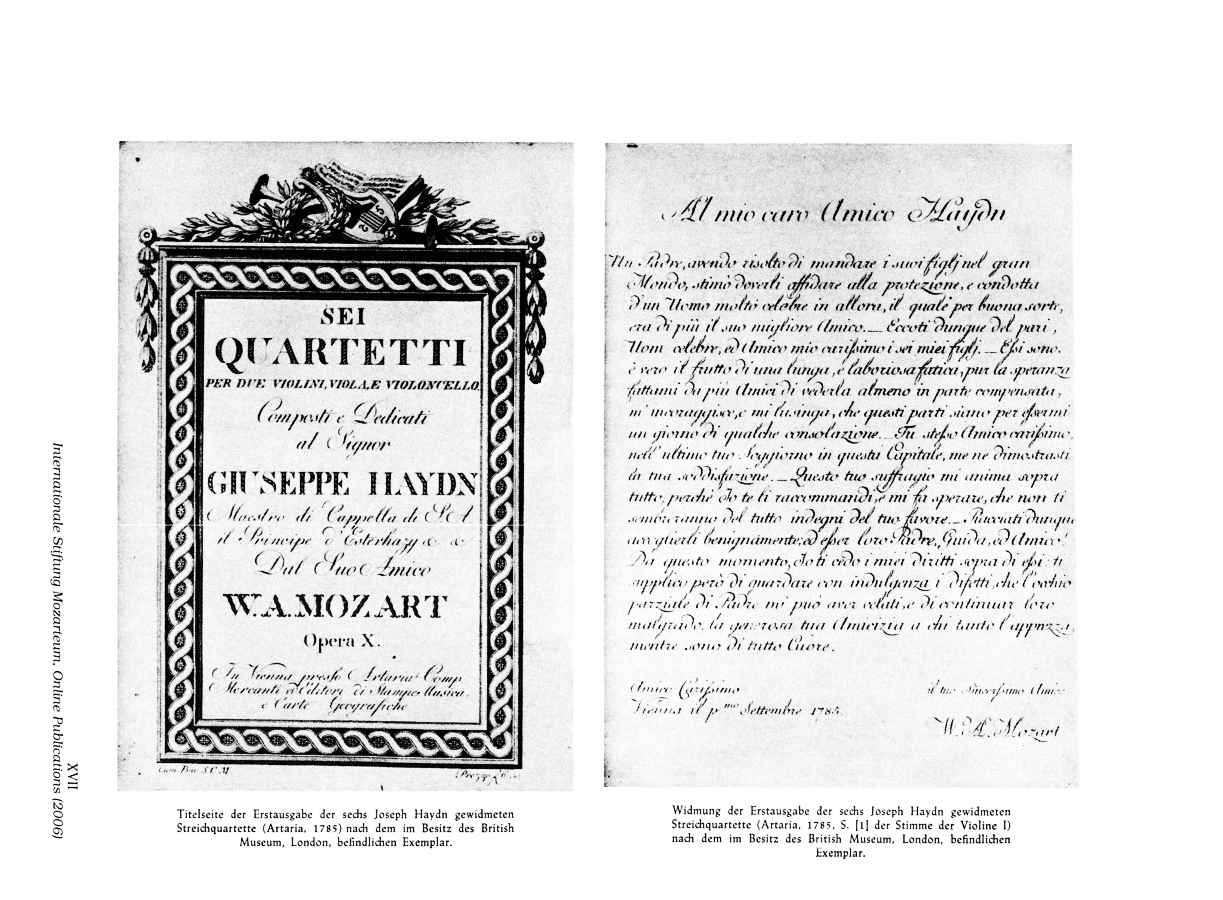 SEI
QUARTETTI
PER DUE VIOLINI, VIOLA, E VIOLONCELLO.
Composti e Dedicati
al Signor
GIUSEPPE HAYDN
Maestro di Cappella di S.A
il Principe d'Esterhazy & &
Dal Suo Amico
W.A.MOZART
Opera X.
In Vienna presso Artaria Comp.
Mercanti ed Editori di Stampe Musica
e Carte Geografiche
Cum Priv. S.C.M.
Prezzo
Titelseite der Erstausgabe der sechs Joseph Haydn gewidmeten
Streichquartette (Artaria, 1785) nach dem im Besitz des British
Museum, London, befindlichen Exemplar.
Al mio caro Amico Haydn
Un Padre, avendo risolto di mandare i suoi figlj nel gran
Mondo, stimò doverli affidare alla protezione, e condotta
d'un Uomo molto celebre in allora, il quale per buona sorte,
era di più il suo migliore Amico. — Eccoti dunque del pari,
Uom celebre, ed Amico mio carissimo i sei miei figlj. — Essi sono,
è vero il frutto di una lunga, e laboriosa fatica, pur la speranza
fattami da più Amici di vederla almeno in parte compensata,
m'incoraggisce, e mi lusinga, che questi parti siano per essermi
un giorno di qualche consolazione. — Tu stesso Amico carissimo,
nell'ultimo tuo Soggiorno in questa Capitale, me ne dimostrasti
la tua soddisfazione. — Questo tuo suffragio mi anima sopra
tutto, perchè Io te li raccommandi, e mi fa sperare, che non ti
sembreranno del tutto indegni del tuo favore. — Piacciati dunque
accoglierli benignamente; ed esser loro Padre, Guida, ed Amico!
Da questo momento, Io ti cedo i miei diritti sopra di essi: ti
supplico però di guardare con indulgenza i difetti, che l'occhio
parziale di Padre mi può aver celati, e di continuar loro
malgrado, la generosa tua Amicizia a chi tanto l'apprezza,
mentre sono di tutto Cuore.
Amico Carissimo
Vienna il p.mo Settembre 1785.
il tuo Sincerissimo Amico
W.A.Mozart
Widmung der Erstausgabe der sechs Joseph Haydn gewidmeten
Streichquartette (Artaria, 1785, S. [1] der Stimme der Violine I)
nach dem im Besitz des British Museum, London, befindlichen
Exemplar.
XVII
Internationale Stiftung Mozarteum, Online Publications (2006)